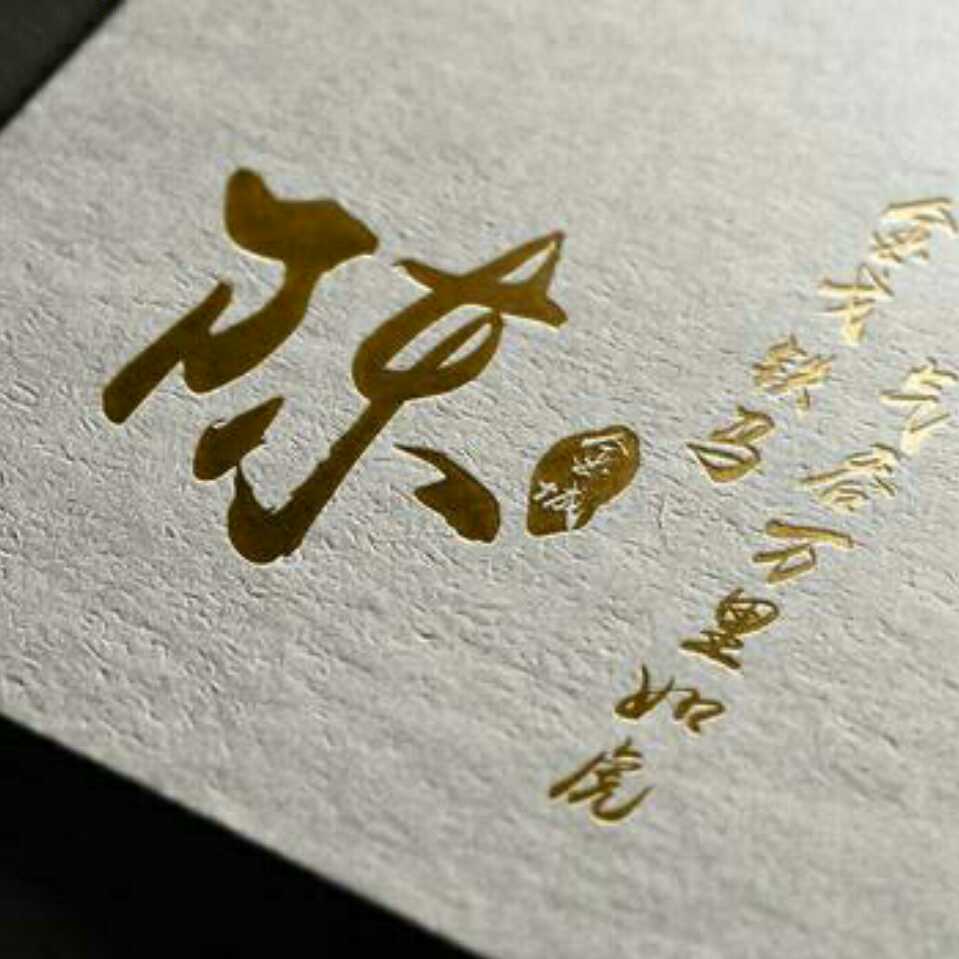 陈
金戈铁马
气吞万里如虎